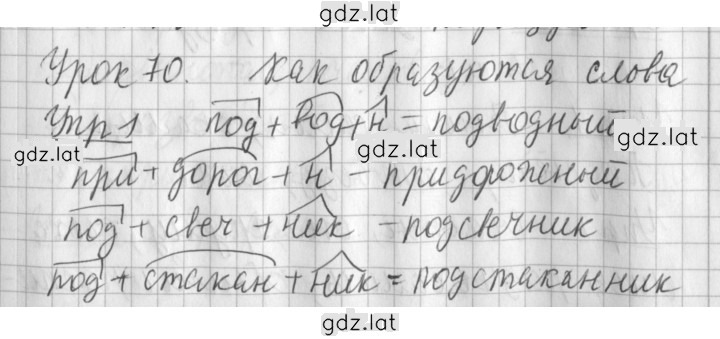 gdz.lat
Урок 70. Как образуются слова
Упр 1 под + вод + н = подводный
gdz.lat gdz.lat gdz.lat
при + дорог + н - придорожный
под + свеч + ник - подсвечник
под + стакан + ник = подстаканник
gdz.lat